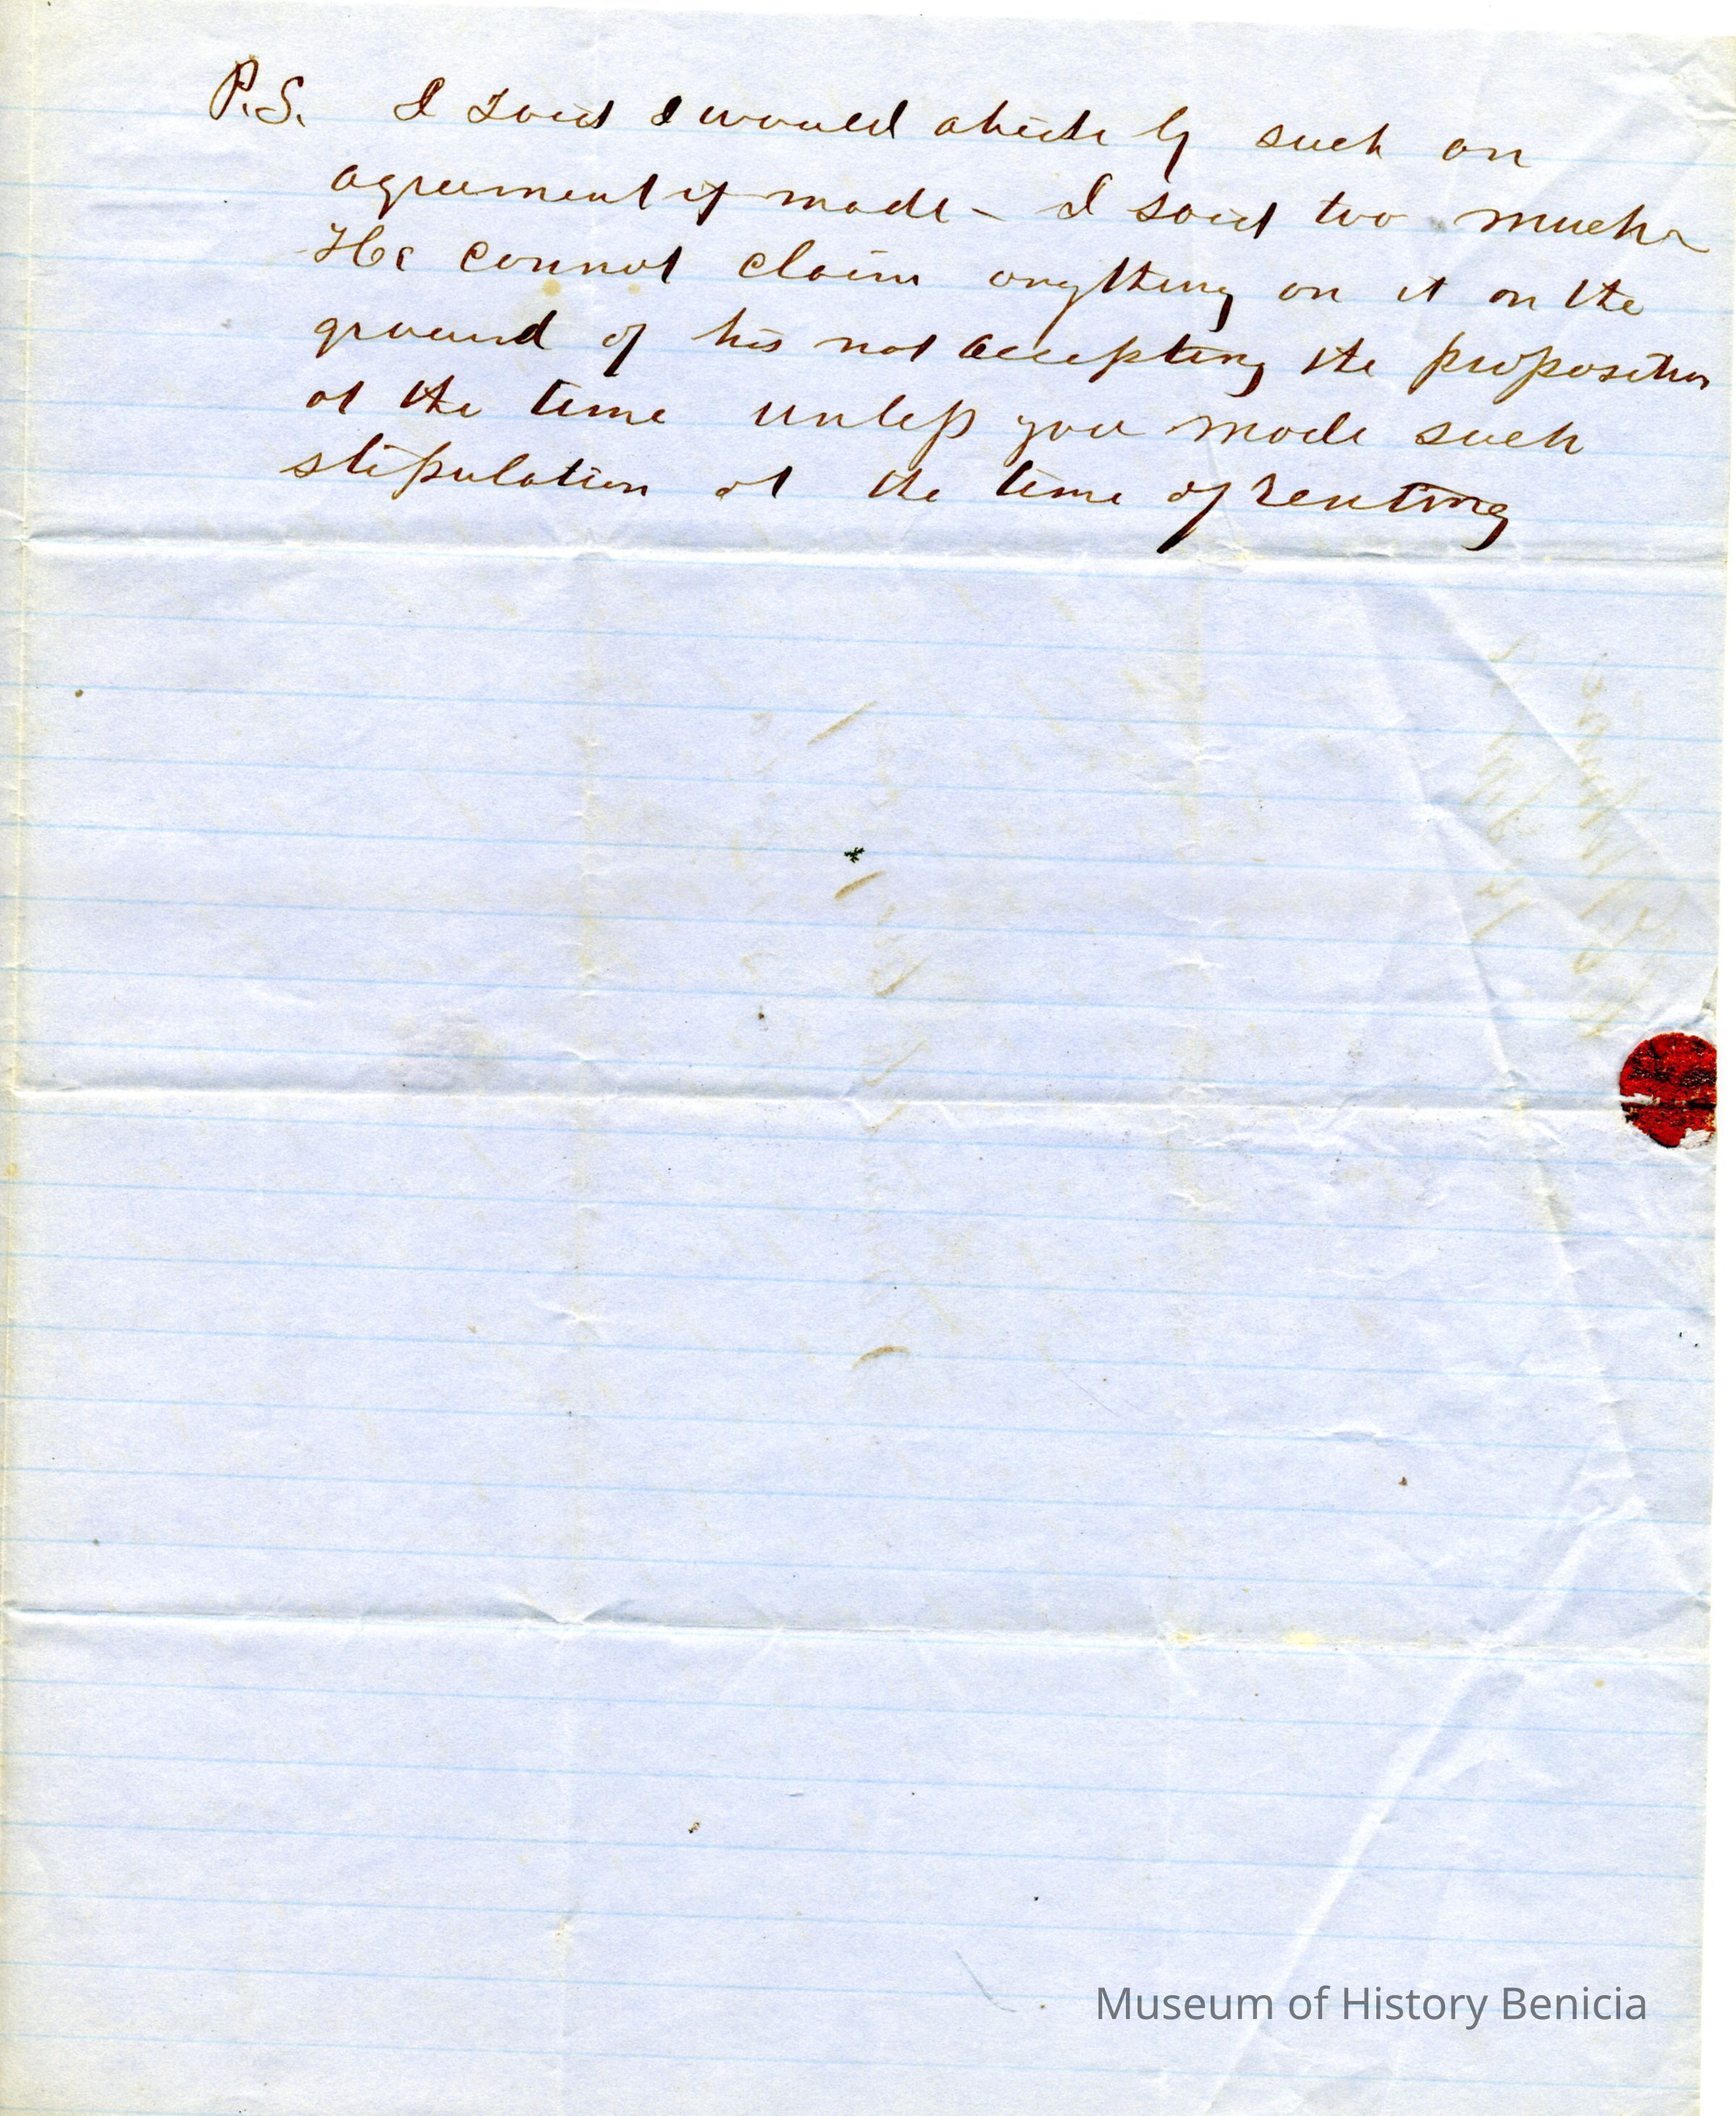 P.S. I said I would abide by such an
agreement if made - I said too much
He cannot claim anything on it on the
ground of his not accepting the proposition
at the time unless you made such
stipulation at the time of renting
Museum of History Benicia